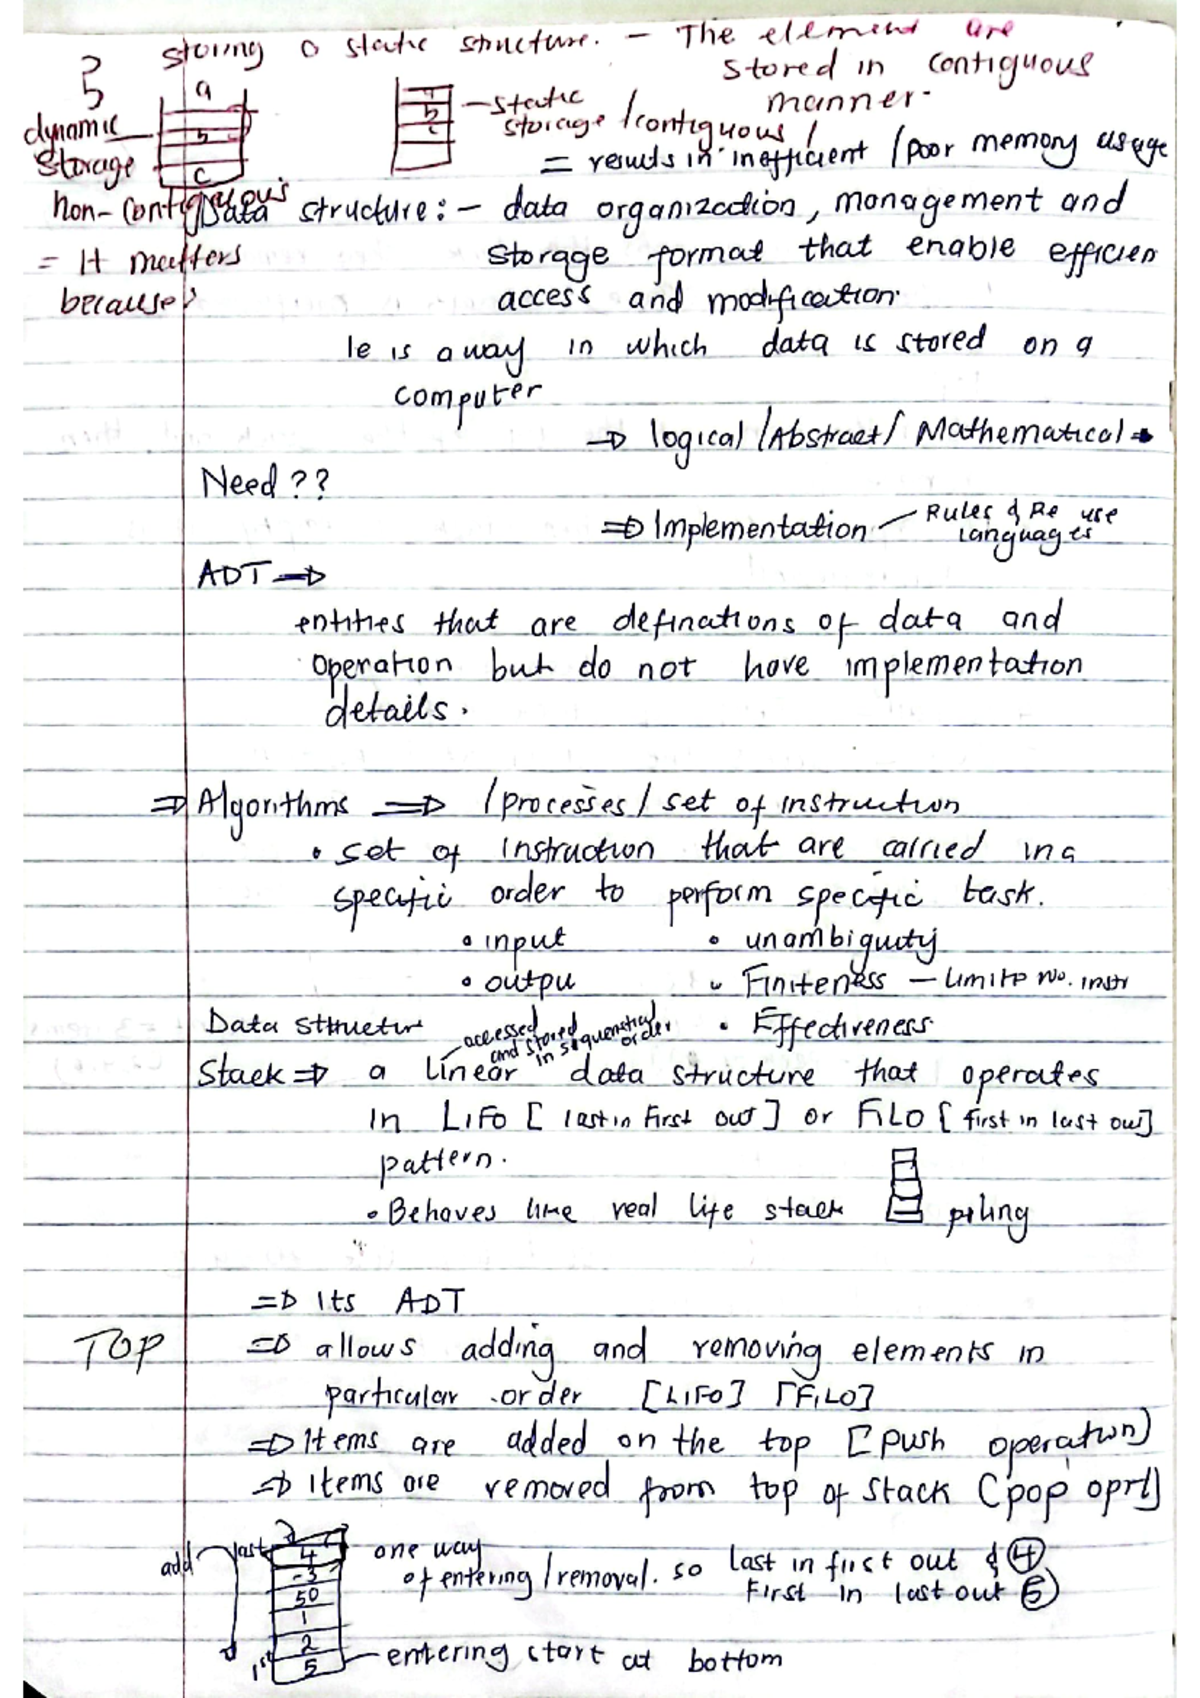 storing a static structure. - The element are
stored in contiguous
manner.
a
b
c
dynamic
storage
non-contiguous
= It matters
because?
- static
storage / contiguous /
= results in inefficient / poor memory usage
Data structure :- data organization, management and
storage format that enable efficien
access and modification.
Ie is a way in which data is stored on a
computer
⇒ logical / Abstract / Mathematical
Need ??
⇒ Implementation - Rules & Re use
languages
ADT ⇒
entities that are definations of data and
operation but do not have implementation
details.
⇒ Algorithms ⇒ / processes / set of instruction
• set of instruction that are carried in a
specific order to perform specific task.
• input • unambiguity
• outpu • Finiteness - Limite No. instr
Data structur • Effectiveness
accessed
and stored
in sequential
order
Stack ⇒ a linear data structure that operates
in LIFO [ last in first out ] or FILO [ first in last out ]
pattern.
• Behaves like real life stack piling
⇒ Its ADT
TOP ⇒ allows adding and removing elements in
particular order [LIFO] [FILO]
⇒ Items are added on the top [push operation]
⇒ Items are removed from top of stack [pop oprt]
add last 4
-3
50
1
2
1st 5
one way
of entering / removal. so last in first out & 4
First in last out 5
entering start at bottom